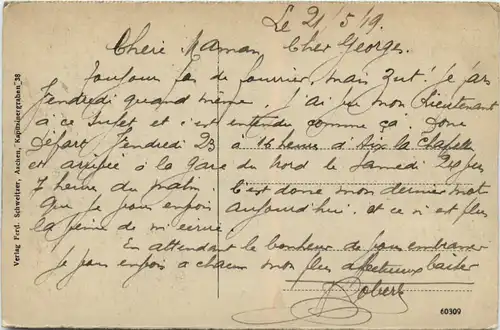 Le 21/5/19.
Cheri Maman, Cher Georges.
Toujours pas de fourrier, mais Zut! je pars
Vendredi quand même. J'ai vu mon Lieutenant
à ce sujet et c'est entendu comme ça. Donc
Départ, Vendredi 23 à 16 heures d'Aix la Chapelle
et arrivée à la gare du Nord le Samedi 24 vers
7 heures du matin. C'est donc mon dernier mot
que je vous envois aujourd'hui, et ce n'est plus
la peine de m'écrire.
En attendant le bonheur de vous embrasser
je vous envois à chacun mon plus affectueux baiser
Robert
Verlag Ferd. Schweitzer, Aachen, Kapuzinergraben 38
60309